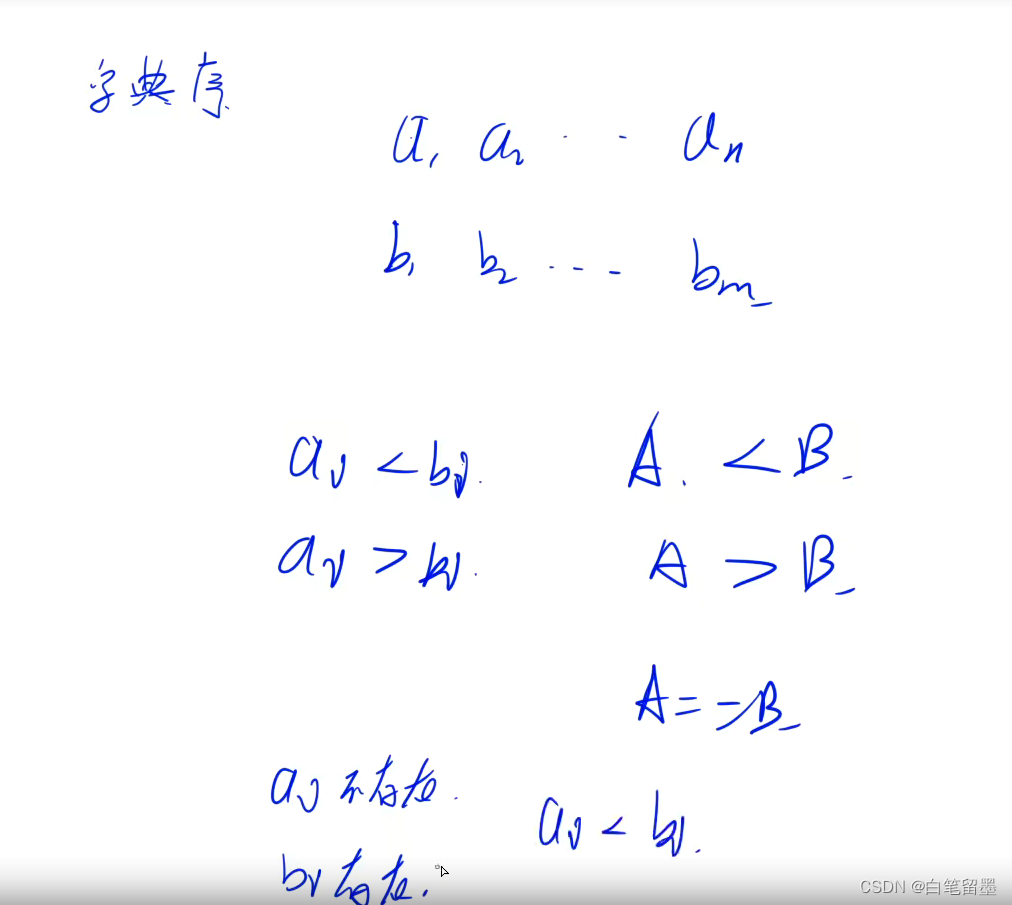 字典序
a₁ a₂ ... aₙ
b₁ b₂ ... bₘ
aᵢ < bᵢ. A. < B
aᵢ > bᵢ. A > B
A == B
aᵢ 不存在.
aᵢ < bᵢ.
bᵢ 存在.
CSDN @白笔留墨